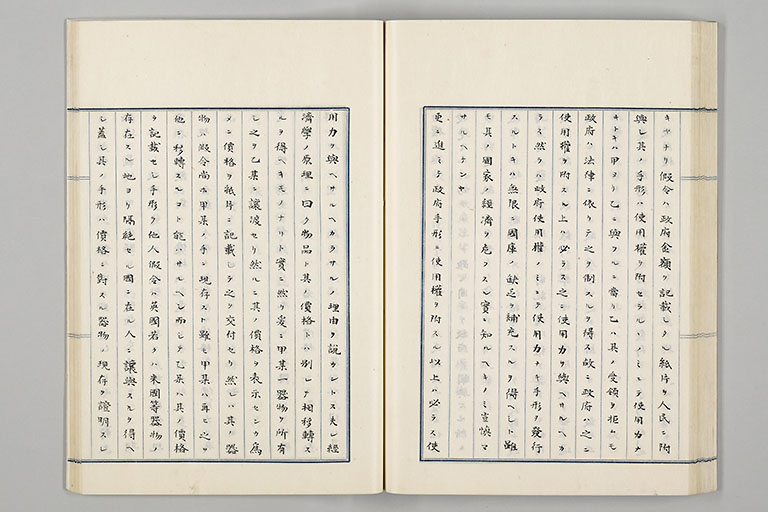 キヤナリ假令ハ政府金額ヲ記載シタル紙片ヲ人民ニ附
與シ其ノ手形ハ使用權ヲ附セラルヽノミニテ使用力ナ
キトキハ甲ヨリ乙ニ與フルニ當リ乙ハ其ノ受領ヲ拒ムモ
政府ハ法律ニ依リテ之ヲ制スルヲ得ス故ニ政府ハ之ニ
使用權ヲ附スル上ハ必ラス之ニ使用力ヲ與ヘサルヘカ
ラス然ラハ政府使用權ノミニシテ使用力ナキ手形ヲ發行
スルトキハ無限ニ國庫ノ缺乏ヲ補充スルヲ得ヘシト雖
モ其ノ國家ノ經濟ヲ危フスル實ニ知ルヘキノミ豈慎マ
サルヘケンヤ
更ニ進ミテ政府手形ニ使用權ヲ附スル以上ハ必ラス使
用力ヲ與ヘサルヘカラサルノ理由ヲ說カントス夫レ經
濟學ノ原理ニ曰ク物品ト其ノ價格トハ別レテ相移轉ス
ルヲ得ヘキモノナリト實ニ然リ爰ニ甲某一器物ヲ所有
シ之ヲ乙某ニ讓渡セリ然ルニ其ノ價格ヲ表示センカ爲
メニ價格ヲ紙片ニ記載シテ之ヲ交付セリ然レハ其ノ器
物ハ假令尚ホ甲某ノ手ニ現存スト雖モ甲某ハ再ヒ之ヲ
他ニ移轉スルコト能ハサルヘシ而シテ乙某ハ其ノ價格
ヲ記載セル手形ヲ他人假令ハ英國若クハ米國等器物ノ
存在スル地ヨリ隔絕セル國ニ在ル人ニ讓與スルヲ得ヘ
シ蓋シ其ノ手形ハ價格ニ對スル器物ノ現存ヲ證明スレ